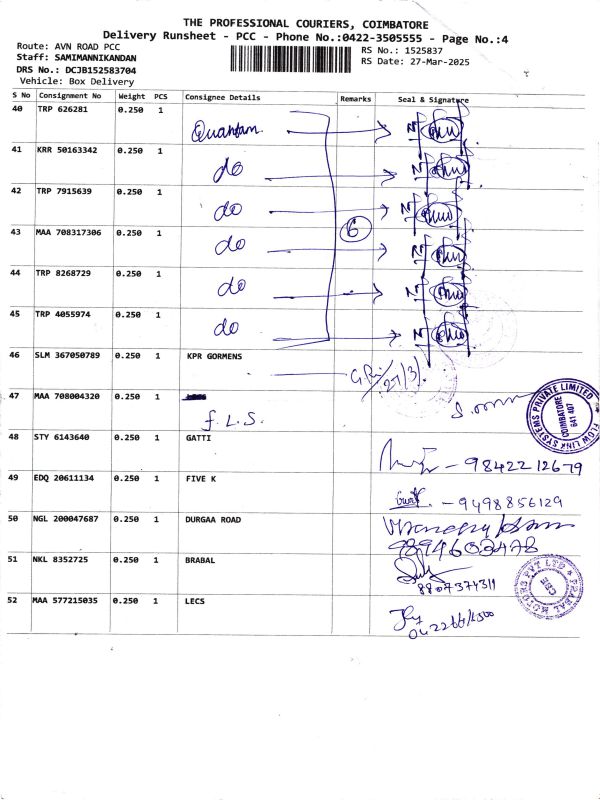 THE PROFESSIONAL COURIERS, COIMBATORE
Delivery Runsheet - PCC - Phone No.:0422-3505555 - Page No.:4
Route: AVN ROAD PCC
RS No.: 1525837
Staff: SAMIMANNIKANDAN
RS Date: 27-Mar-2025
DRS No.: DCJB152583704
Vehicle: Box Delivery
S No Consignment No Weight PCS Consignee Details Remarks Seal & Signature
40 TRP 626281 0.250 1 Quantam
41 KRR 50163342 0.250 1 do
42 TRP 7915639 0.250 1 do
43 MAA 708317306 0.250 1 do 6
44 TRP 8268729 0.250 1 do
45 TRP 4055974 0.250 1 do
46 SLM 367050789 0.250 1 KPR GORMENS
27/3).
47 MAA 708004320 0.250 1
F.L.S.
FLOW LINK SYSTEMS PRIVATE LIMITED
COIMBATORE
641 407
48 STY 6143640 0.250 1 GATTI
- 9842212679
49 EDQ 20611134 0.250 1 FIVE K
- 9498856129
50 NGL 200047687 0.250 1 DURGAA ROAD
9894603478
51 NKL 8352725 0.250 1 BRABAL
8807374311
PRABAL MOTORS PVT LTD
CBE
52 MAA 577215035 0.250 1 LECS